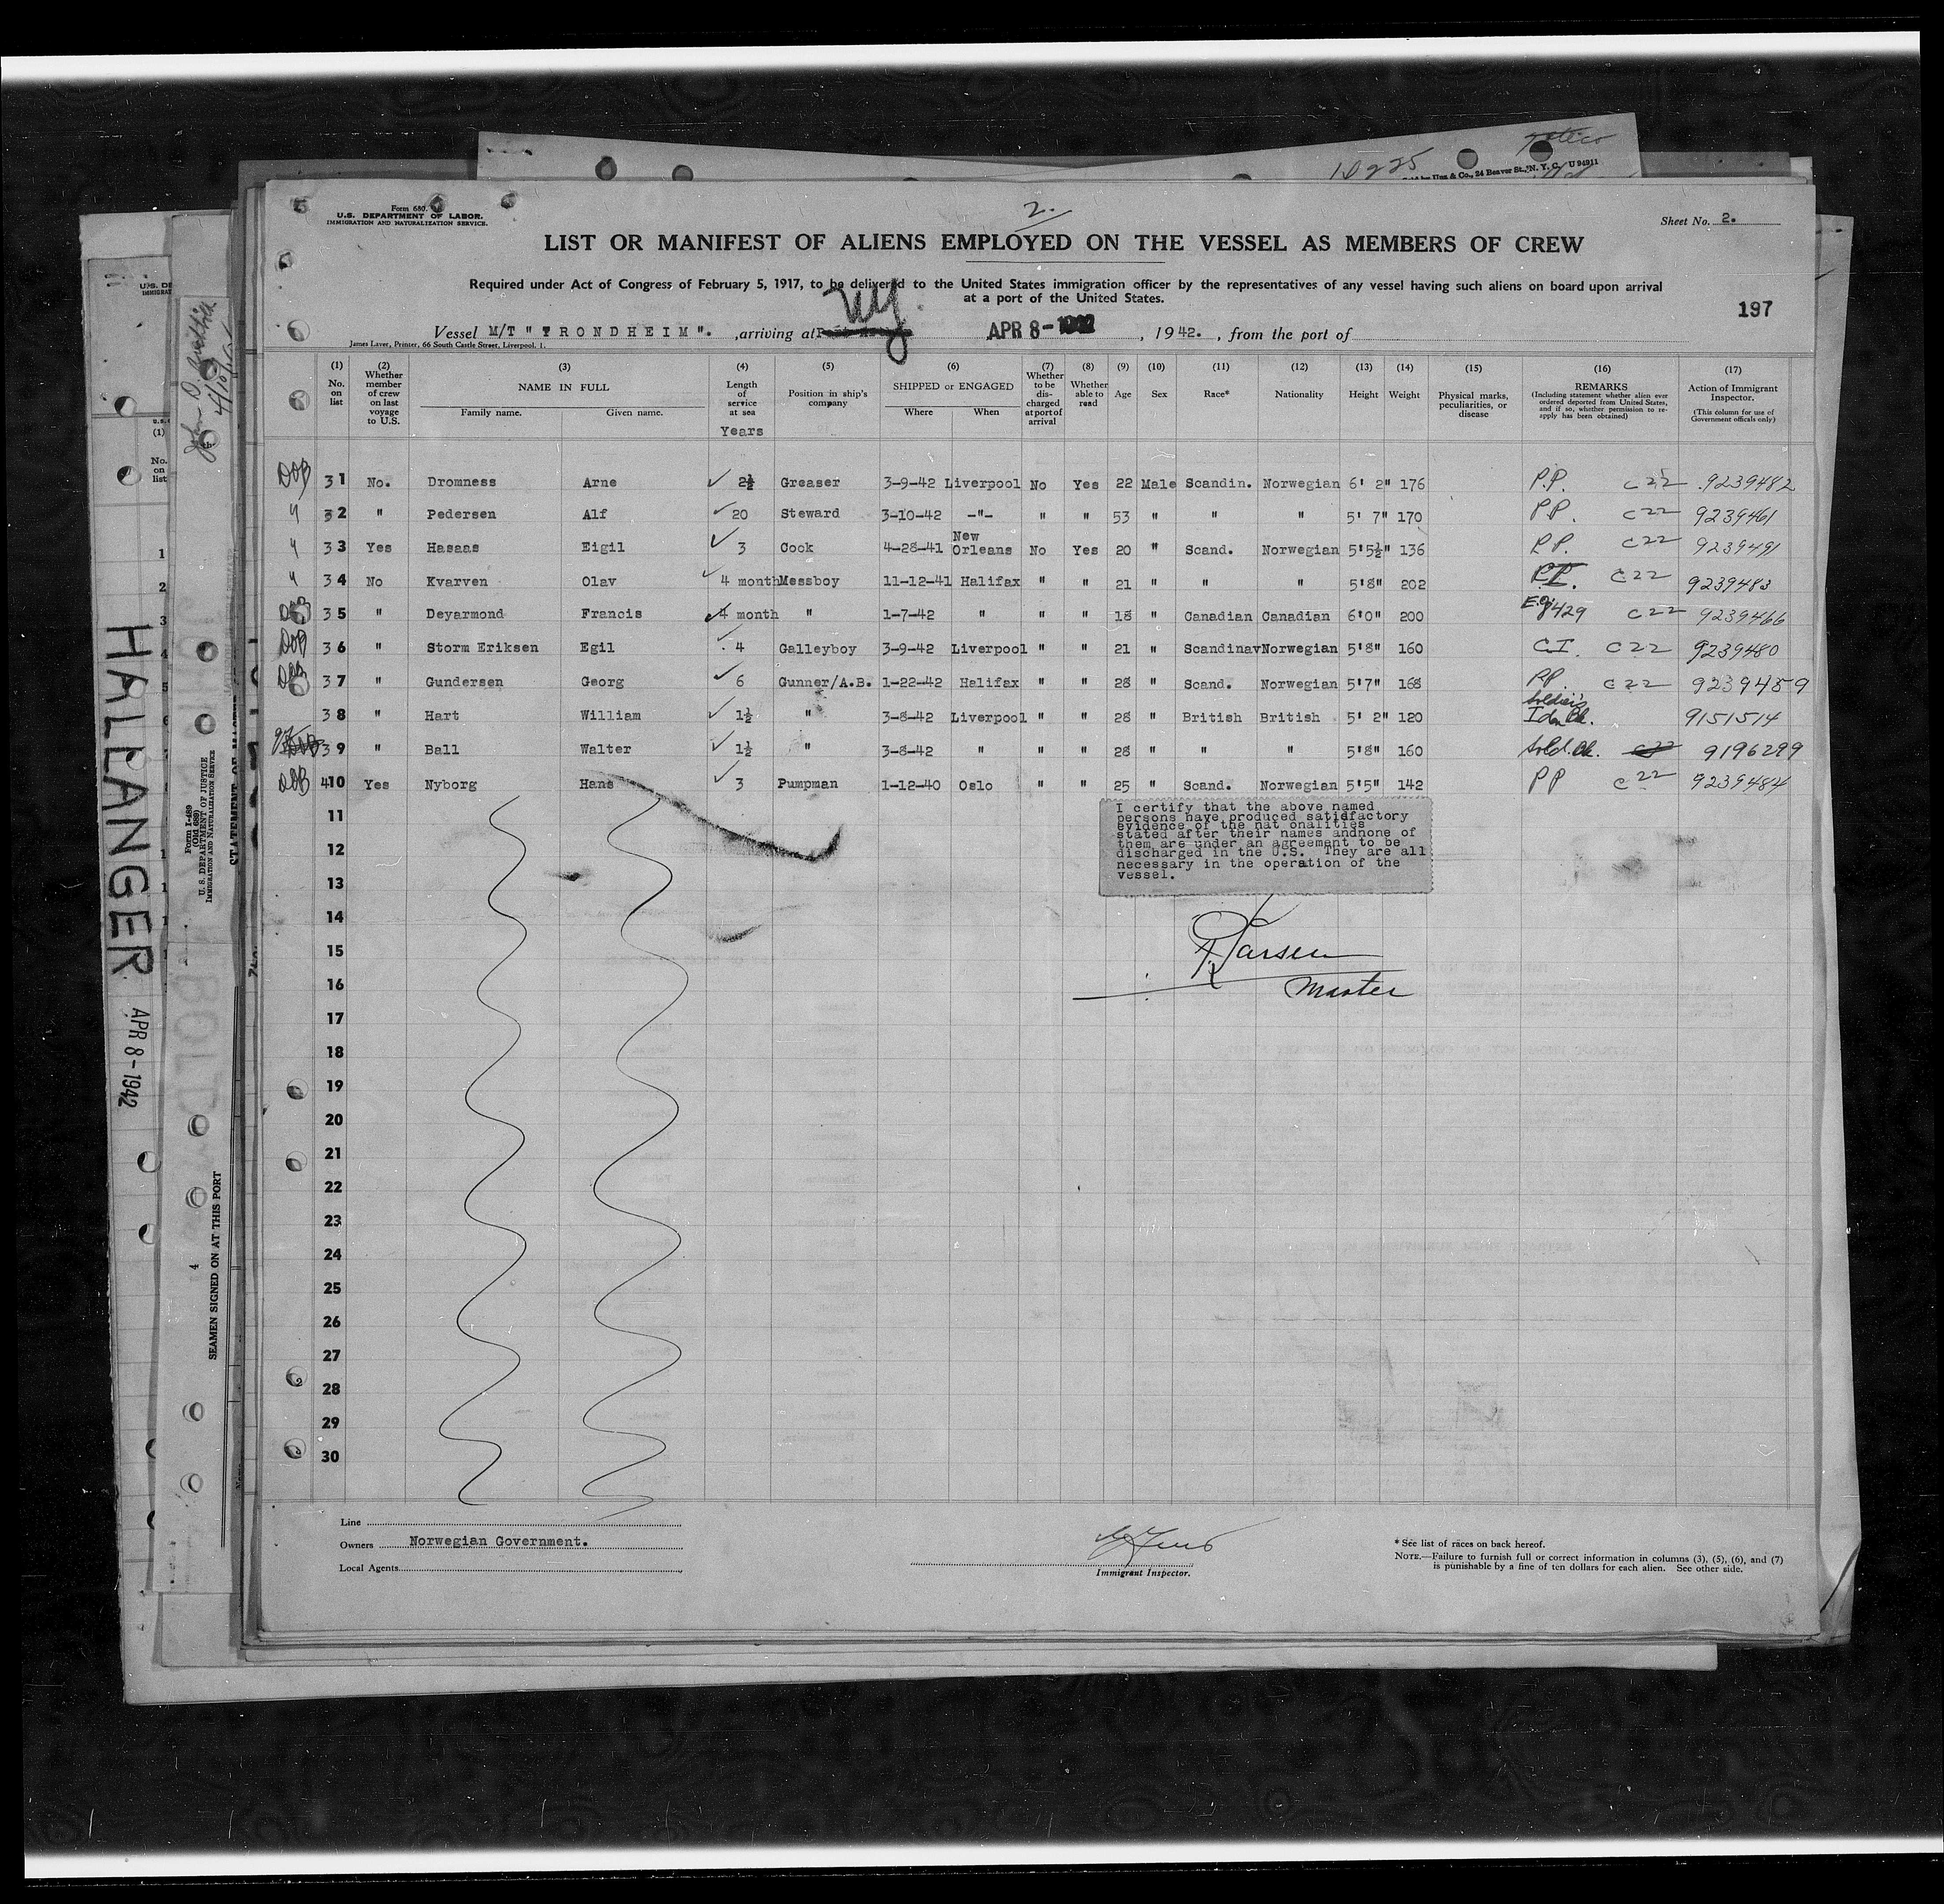 Form 680.
U.S. DEPARTMENT OF LABOR.
IMMIGRATION AND NATURALIZATION SERVICE.
2.
Sheet No. 2.
LIST OR MANIFEST OF ALIENS EMPLOYED ON THE VESSEL AS MEMBERS OF CREW
Required under Act of Congress of February 5, 1917, to be delivered to the United States immigration officer by the representatives of any vessel having such aliens on board upon arrival
at a port of the United States.
197
Vessel M/T "TRONDHEIM". , arriving at NY. APR 8-1942 , 1942. , from the port of
James Laver, Printer, 66 South Castle Street, Liverpool. 1.
(1) No. on list
(2) Whether member of crew on last voyage to U.S.
(3) NAME IN FULL Family name. Given name.
(4) Length of service at sea Years
(5) Position in ship's company
(6) SHIPPED or ENGAGED Where When
(7) Whether to be discharged at port of arrival
(8) Whether able to read
(9) Age
(10) Sex
(11) Race*
(12) Nationality
(13) Height
(14) Weight
(15) Physical marks, peculiarities, or disease
(16) REMARKS (Including statement whether alien ever ordered deported from United States, and if so, whether permission to re-apply has been obtained)
(17) Action of Immigrant Inspector. (This column for use of Government officals only)
DOB 31 No. Dromness Arne 2½ Greaser 3-9-42 Liverpool No Yes 22 Male Scandin. Norwegian 6' 2" 176 P.P. C22 9239482
" 32 " Pedersen Alf 20 Steward 3-10-42 -"- " " 53 " " " 5' 7" 170 P.P. C22 9239461
" 33 Yes Hasaas Eigil 3 Cook 4-28-41 New Orleans No Yes 20 " Scand. Norwegian 5'5½" 136 P.P. C22 9239491
" 34 No Kvarven Olav 4 month Messboy 11-12-41 Halifax " " 21 " " " 5'8" 202 C22 9239483
35 " Deyarmond Francis 4 month " 1-7-42 " " " 18 " Canadian Canadian 6'0" 200 C22 9239466
DOB 36 " Storm Eriksen Egil 4 Galleyboy 3-9-42 Liverpool " " 21 " Scandinav Norwegian 5'8" 160 C.I. C22 9239480
37 " Gundersen Georg 6 Gunner/A.B. 1-22-42 Halifax " " 28 " Scand. Norwegian 5'7" 168 P.P. C22 9239459
38 " Hart William 1½ " 3-8-42 Liverpool " " 28 " British British 5' 2" 120 Soldier's Iden Bk. 9151514
39 " Ball Walter 1½ " 3-8-42 " " " 28 " " " 5'8" 160 Sold. Bk. C22 9196299
DOB 40 Yes Nyborg Hans 3 Pumpman 1-12-40 Oslo " " 25 " Scand. Norwegian 5'5" 142 PP C22 9239484
I certify that the above named
persons have produced satidfactory
evidence of the nat onalities
stated after their names andnone of
them are under an agreement to be
discharged in the U.S. They are all
necessary in the operation of the
vessel.
Larsen
Master
11
12
13
14
15
16
17
18
19
20
21
22
23
24
25
26
27
28
29
30
Line
Owners Norwegian Government.
Local Agents
Immigrant Inspector.
* See list of races on back hereof.
NOTE.—Failure to furnish full or correct information in columns (3), (5), (6), and (7)
is punishable by a fine of ten dollars for each alien. See other side.
HALLANGER
APR 8-1942
Form I-489
(Old 689)
U. S. DEPARTMENT OF JUSTICE
IMMIGRATION AND NATURALIZATION SERVICE
SEAMEN SIGNED ON AT THIS PORT
4
& Co., 24 Beaver St., N. Y. C. U 94911